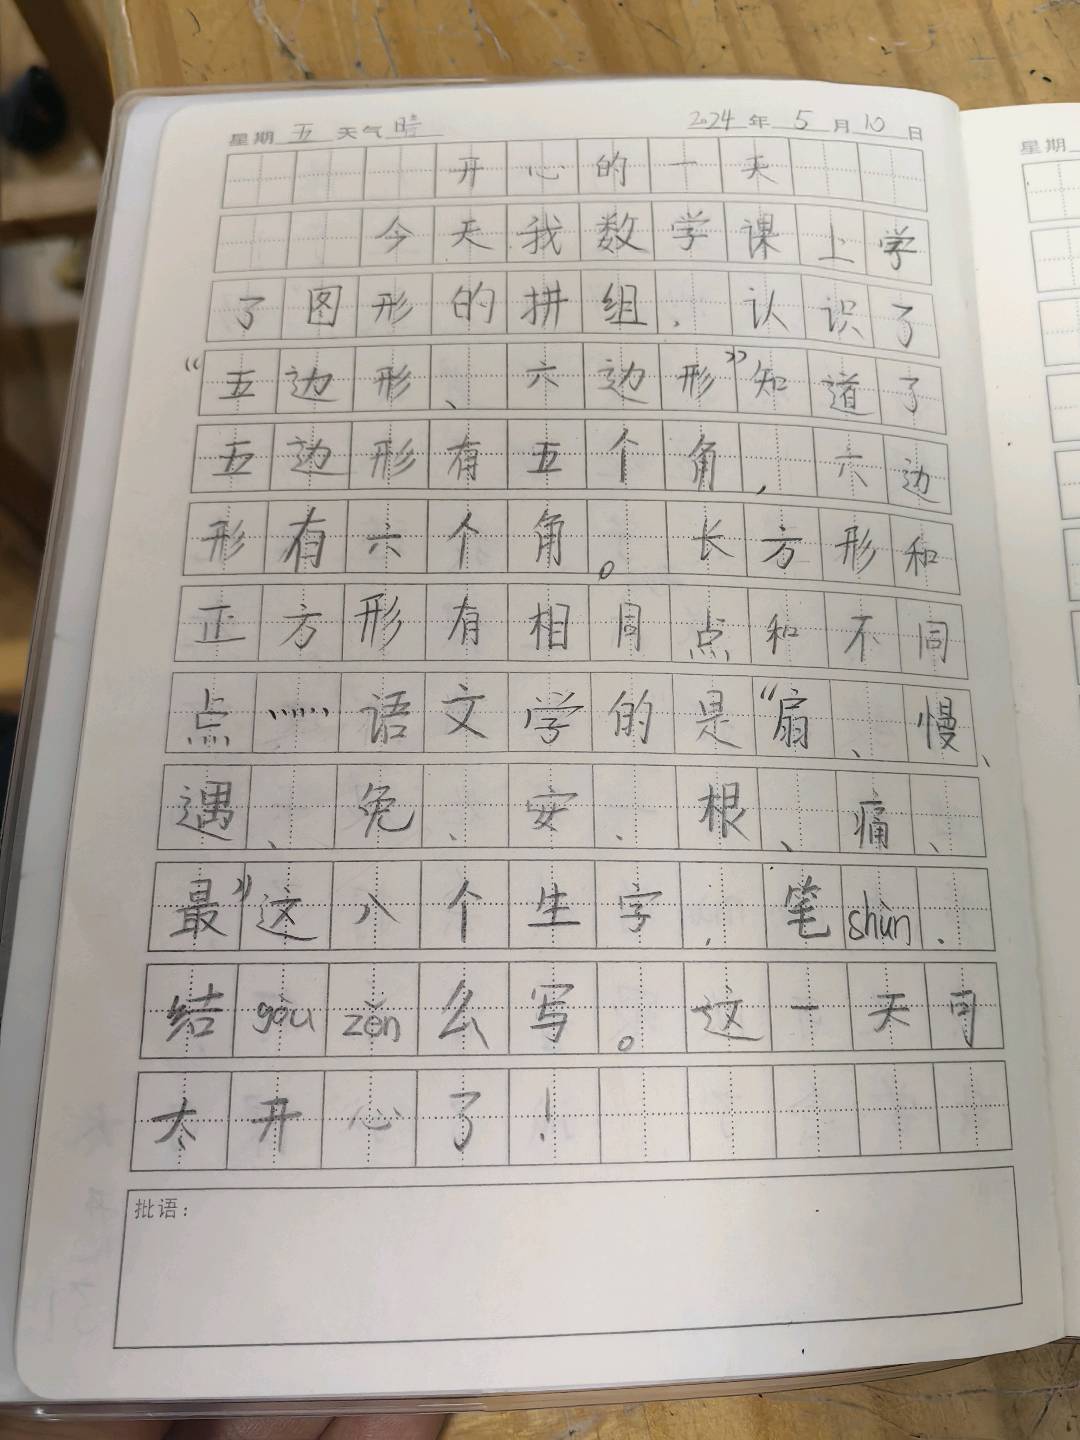 星期 五 天气 晴 2024 年 5 月 10 日
开心的一天
今天我数学课上学
了图形的拼组，认识了
“五边形、六边形”知道了
五边形有五个角，六边
形有六个角。长方形和
正方形有相同点和不同
点……语文学的是“扇、慢、
遇、免、安、根、痛、
最”这八个生字，笔shùn、
结gòu zěn么写。这一天可
太开心了！
批语：
星期